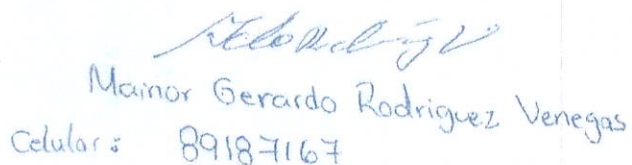 Mainor Gerardo Rodriguez Venegas
Celular: 89187167